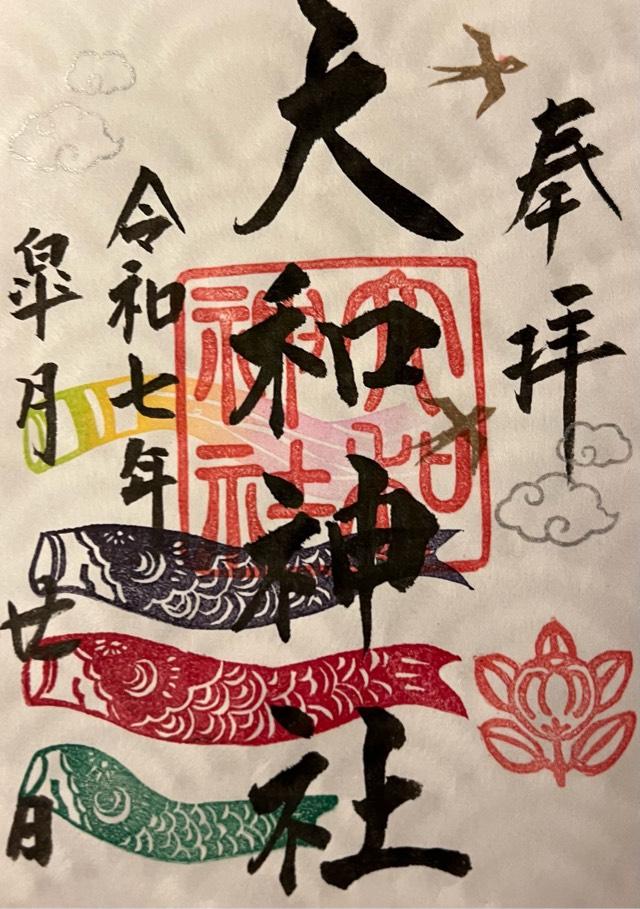 奉拝
大和神社
大和
神社
令和七年
皐月廿日